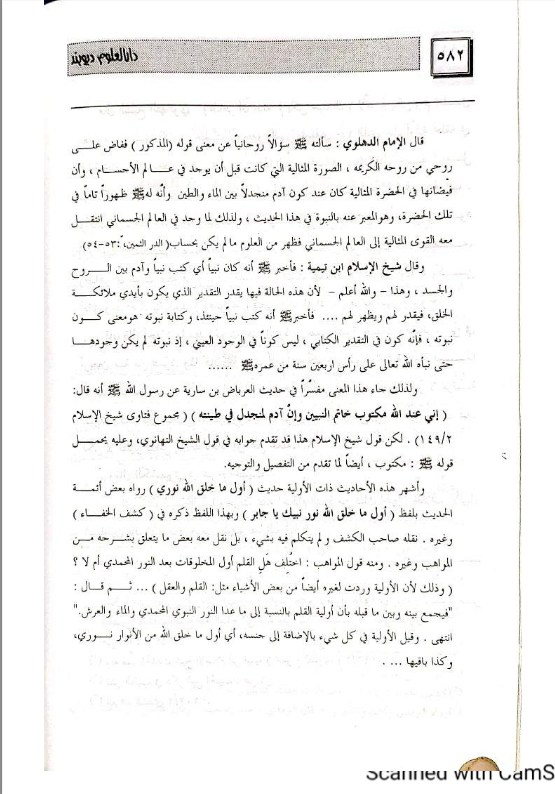 ٥٨٢
دارالعلوم ديوبند
قال الإمام الدهلوي : سألته ﷺ سؤالاً روحانياً عن معنى قوله (المذكور ) ففاض على
روحي من روحه الكريمه ، الصورة المثالية التي كانت قبل أن يوجد في عـالم الأجسام ، وأن
فيضانها في الحضرة المثالية كان عند كون آدم منجدلاً بين الماء والطين وأنّه له ﷺ ظهوراً تاماً في
تلك الحضرة، وهوالمعبر عنه بالنبوة في هذا الحديث ، ولذلك لما وجد في العالم الجسماني انتقـل
معه القوى المثالية إلى العالم الجسماني فظهر من العلوم ما لم يكن بحساب( الدر الثمين، :٥٣-٥٤)
وقال شيخ الإسلام ابن تيمية : فأخبر ﷺ أنه كان نبياً أي كتب نبياً وآدم بين الـروح
والجسد ، وهذا – والله أعلم – لأن هذه الحالة فيها يقدر التقدير الذي يكون بأيدي ملائكـة
الخلق، فيقدر لهم ويظهر لهم .... فأخبرﷺ أنه كتب نبياً حينئذ، وكتابة نبوته هومعنى كـون
نبوته ، فإنّه كون في التقدير الكتابي ، ليس كوناً في الوجود العيني ، إذ نبوته لم يكن وجودها
حتى نبأه الله تعالى على رأس اربعين سنة من عمره ﷺ ......
ولذلك جاء هذا المعنى مفسّراً في حديث العرباض بن سارية عن رسول الله ﷺ أنه قال:
( إني عند الله مكتوب خاتم النبيين وإنّ آدم لمنجدل في طينته ) ( مجموع فتاوى شيخ الإسلام
١٤٩/٢) . لكن قول شيخ الإسلام هذا قد تقدم جوابه في قول الشيخ التهانوي، وعليه يحمـل
قوله ﷺ : مكتوب ، أيضاً لما تقدم من التفصيل والتوجيه.
وأشهر هذه الأحاديث ذات الأولية حديث ( أول ما خلق الله نوري ) رواه بعض أئمـة
الحديث بلفظ ( أول ما خلق الله نور نبيك يا جابر ) وبهذا اللفظ ذكره في ( كشف الخفـاء )
وغيره . نقله صاحب الكشف و لم يتكلم فيه بشيء ، بل نقل معه بعض ما يتعلق بشـرحه مـن
المواهب وغيره . ومنه قول المواهب : اختُلِف هَلِ القلم أول المخلوقات بعد النور المحمدي أم لا ؟
( وذلك لأن الأولية وردت لغيره أيضاً من بعض الأشياء مثل: القلم والعقل ) ... ثـم قـال :
"فيجمع بينه وبين ما قبله بأن أولية القلم بالنسبة إلى ما عدا النور النبوي المحمدي والماء والعرش."
انتهى . وقيل الأولية في كل شيء بالإضافة إلى جنسه، أي أول ما خلق الله من الأنوار نـوري،
وكذا باقيها ... .
Scanned with CamS